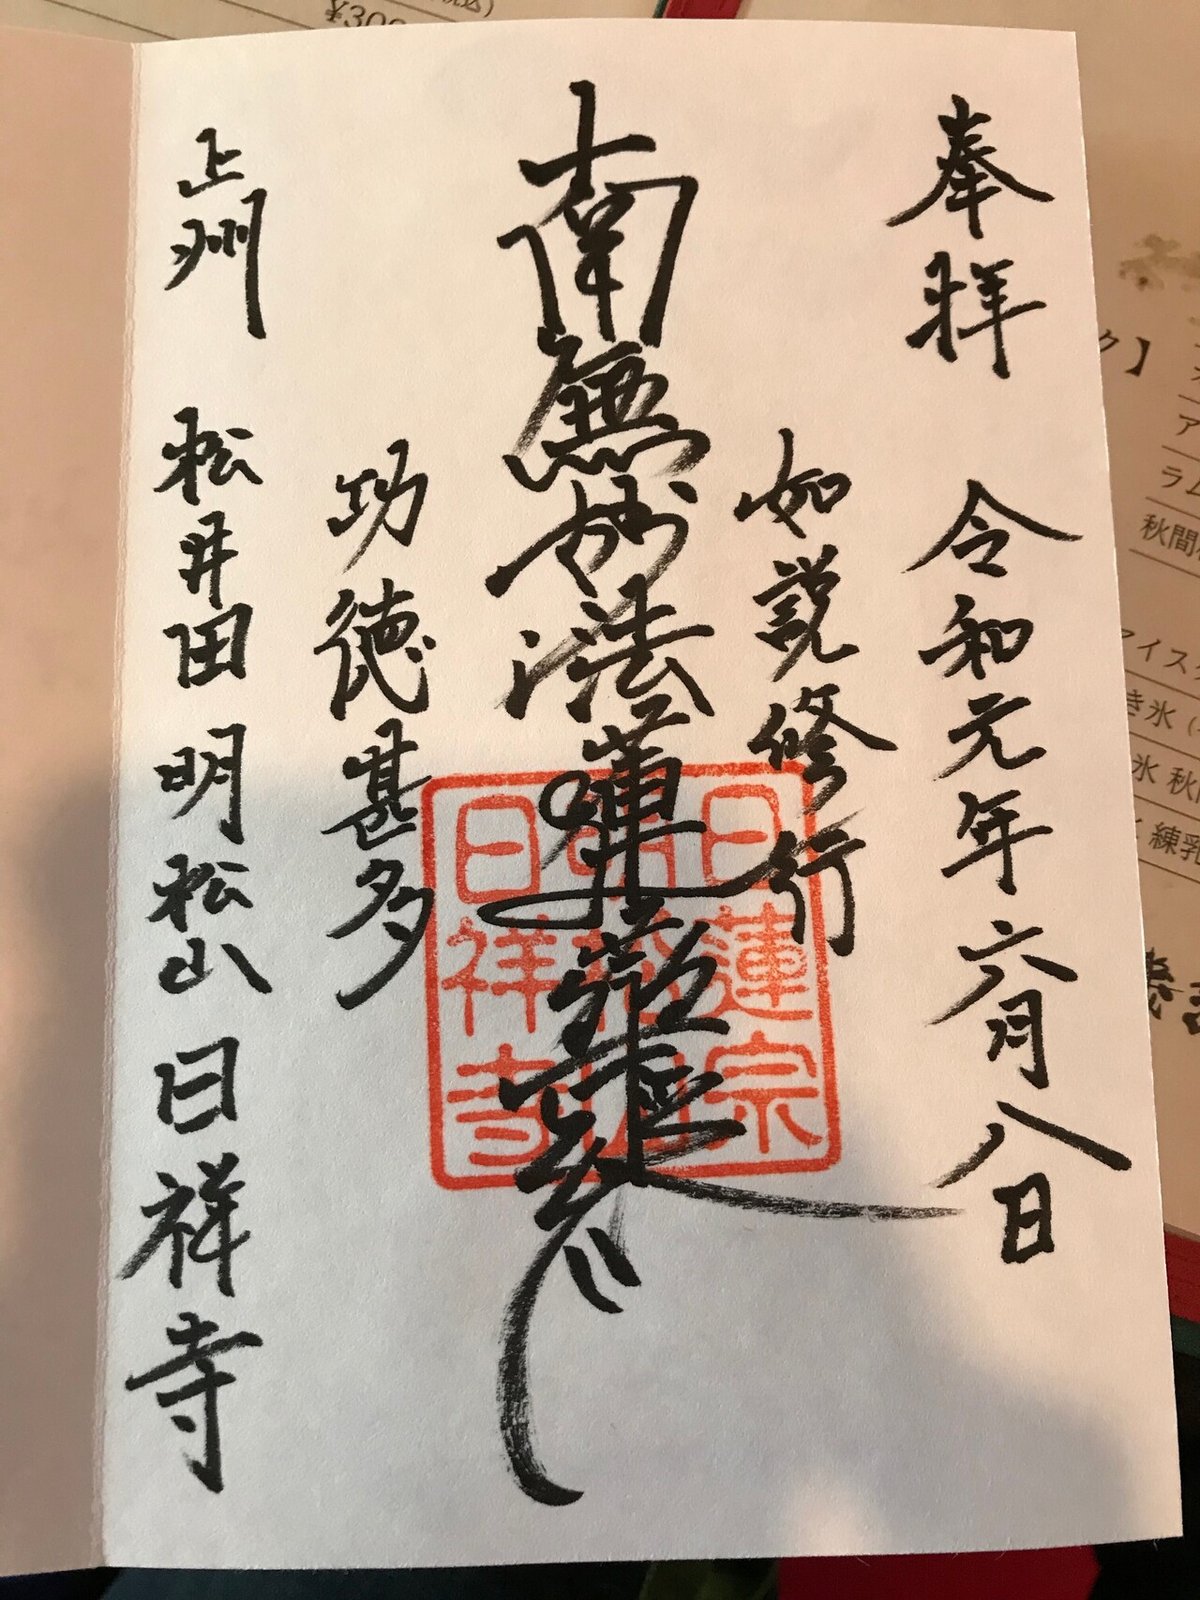 奉拝 令和元年六月八日
如説修行
南無妙法蓮華経
功徳甚多
上州 松井田 明松山 日祥寺
日蓮宗
明松山
日祥寺
¥300
ク】
ア
ラム
秋間
アイス
き氷
氷 秋
練乳